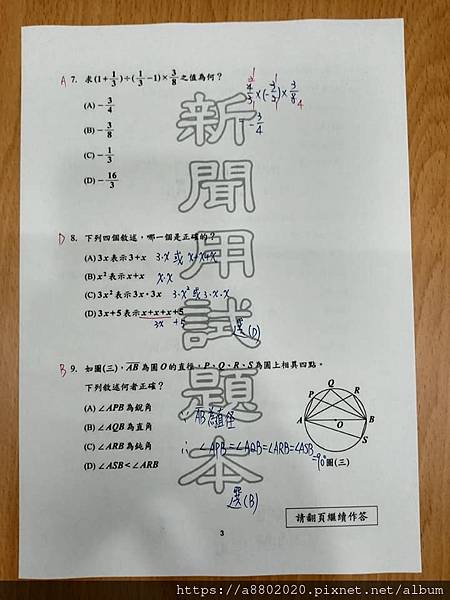 A 7. 求(1+1/3)÷(1/3-1)×3/8之值為何？
(A) -3/4
(B) -3/8
(C) -1/3
(D) -16/3
= -3/4
D 8. 下列四個敘述，哪一個是正確的？
(A) 3x 表示 3+x 3·x 或 x+x+x
(B) x² 表示 x+x x·x
(C) 3x² 表示 3x·3x 3·x² 或 3·x·x
(D) 3x+5 表示 x+x+x+5
3x +5 選(D)
B 9. 如圖(三)，AB 為圓 O 的直徑，P、Q、R、S 為圓上相異四點。
下列敘述何者正確？
(A) ∠APB 為銳角
(B) ∠AQB 為直角
(C) ∠ARB 為鈍角
(D) ∠ASB < ∠ARB
∵ AB為直徑
∴ ∠APB=∠AQB=∠ARB=∠ASB
=90°
選(B)
P Q R
A O B
S
圖(三)
新聞用試題本
請翻頁繼續作答
3
https://a8802020.pixnet.net/album